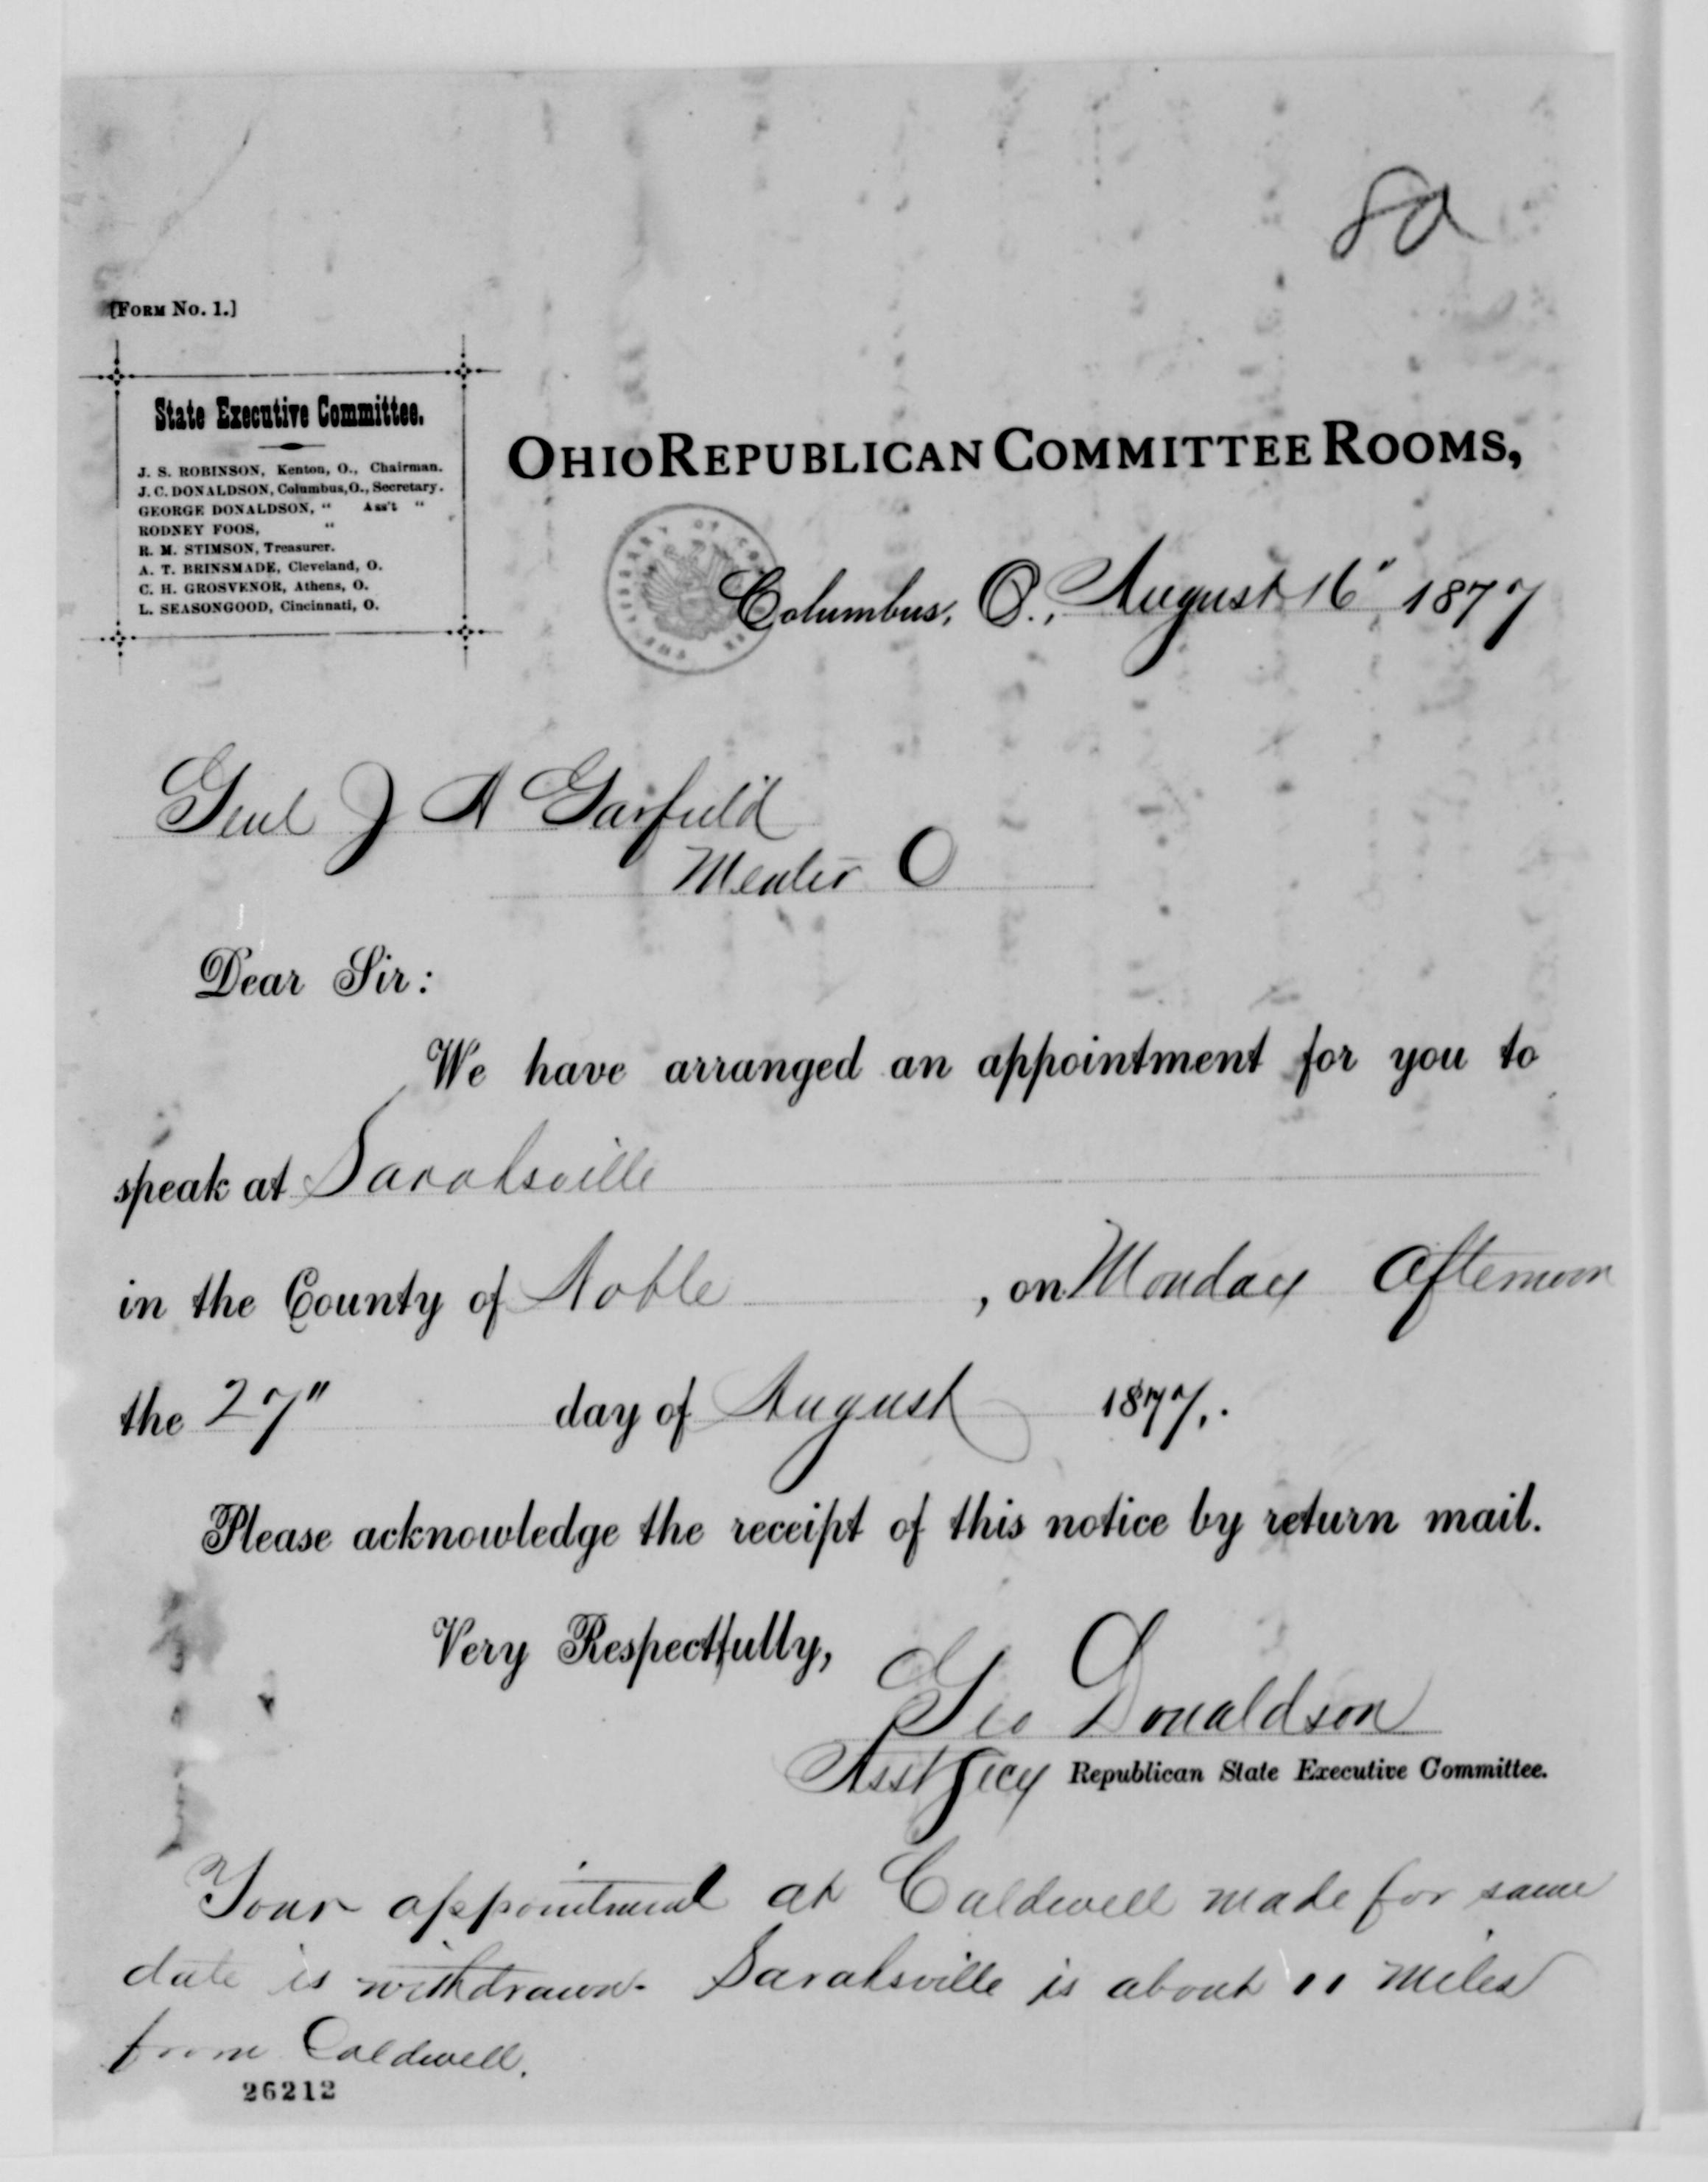 8a
[FORM No. 1.]
State Executive Committee.
J. S. ROBINSON, Kenton, O., Chairman.
J. C. DONALDSON, Columbus, O., Secretary.
GEORGE DONALDSON, " Ass't "
RODNEY FOOS, "
R. M. STIMSON, Treasurer.
A. T. BRINSMADE, Cleveland, O.
C. H. GROSVENOR, Athens, O.
L. SEASONGOOD, Cincinnati, O.
OHIO REPUBLICAN COMMITTEE ROOMS,
Columbus, O., August 16" 1877
Genl J A Garfield
Mentor O
Dear Sir:
We have arranged an appointment for you to
speak at Sarahsville
in the County of Noble, on Monday Afternoon
the 27" day of August 1877.
Please acknowledge the receipt of this notice by return mail.
Very Respectfully,
Geo Donaldson
Asst Secy Republican State Executive Committee.
Your appointment at Caldwell made for same
date is withdrawn. Sarahsville is about 11 miles
from Caldwell.
26212